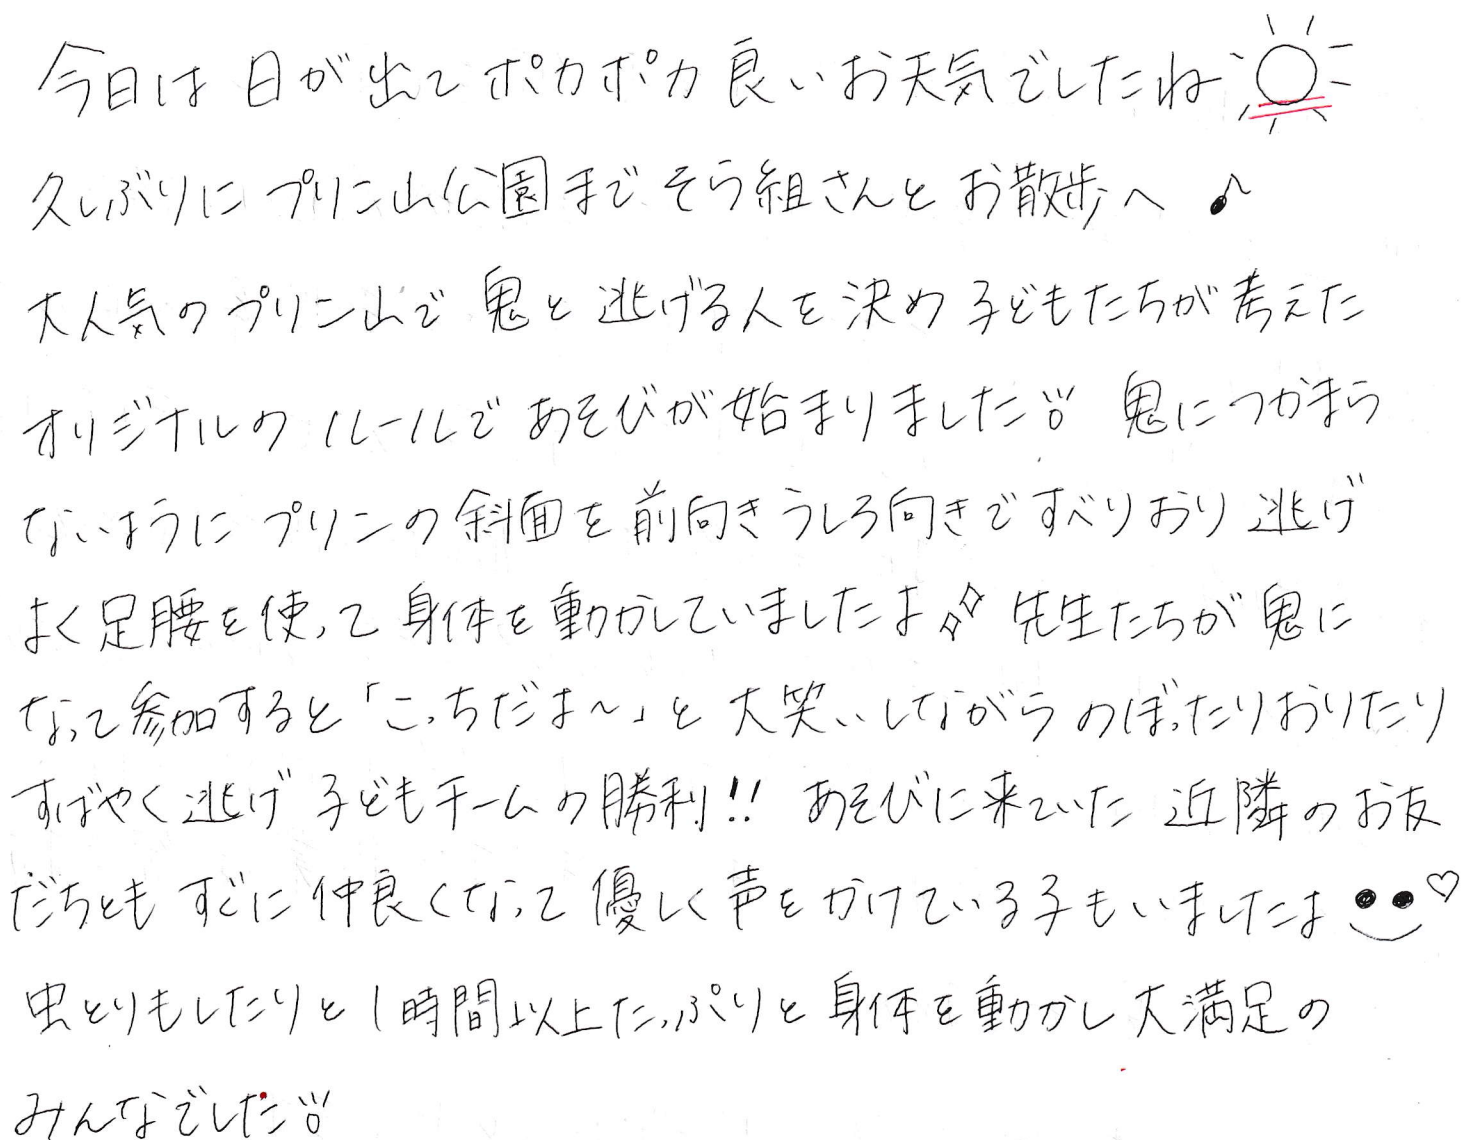 今日は日が出てポカポカ良いお天気でしたね
久しぶりにプリン山公園までそら組さんとお散歩へ♪
大人気のプリン山で鬼と逃げる人を決め子どもたちが考えた
オリジナルのルールであそびが始まりました 鬼につかまら
ないようにプリンの斜面を前向きうしろ向きですべりおり逃げ
よく足腰を使って身体を動かしていましたよ 先生たちが鬼に
なって参加すると「こっちだよ～」と大笑いしながらのぼったりおりたり
すばやく逃げ子どもチームの勝利!! あそびに来ていた近隣のお友
だちともすぐに仲良くなって優しく声をかけている子もいましたよ♡
虫とりもしたりと1時間以上たっぷりと身体を動かし大満足の
みんなでした